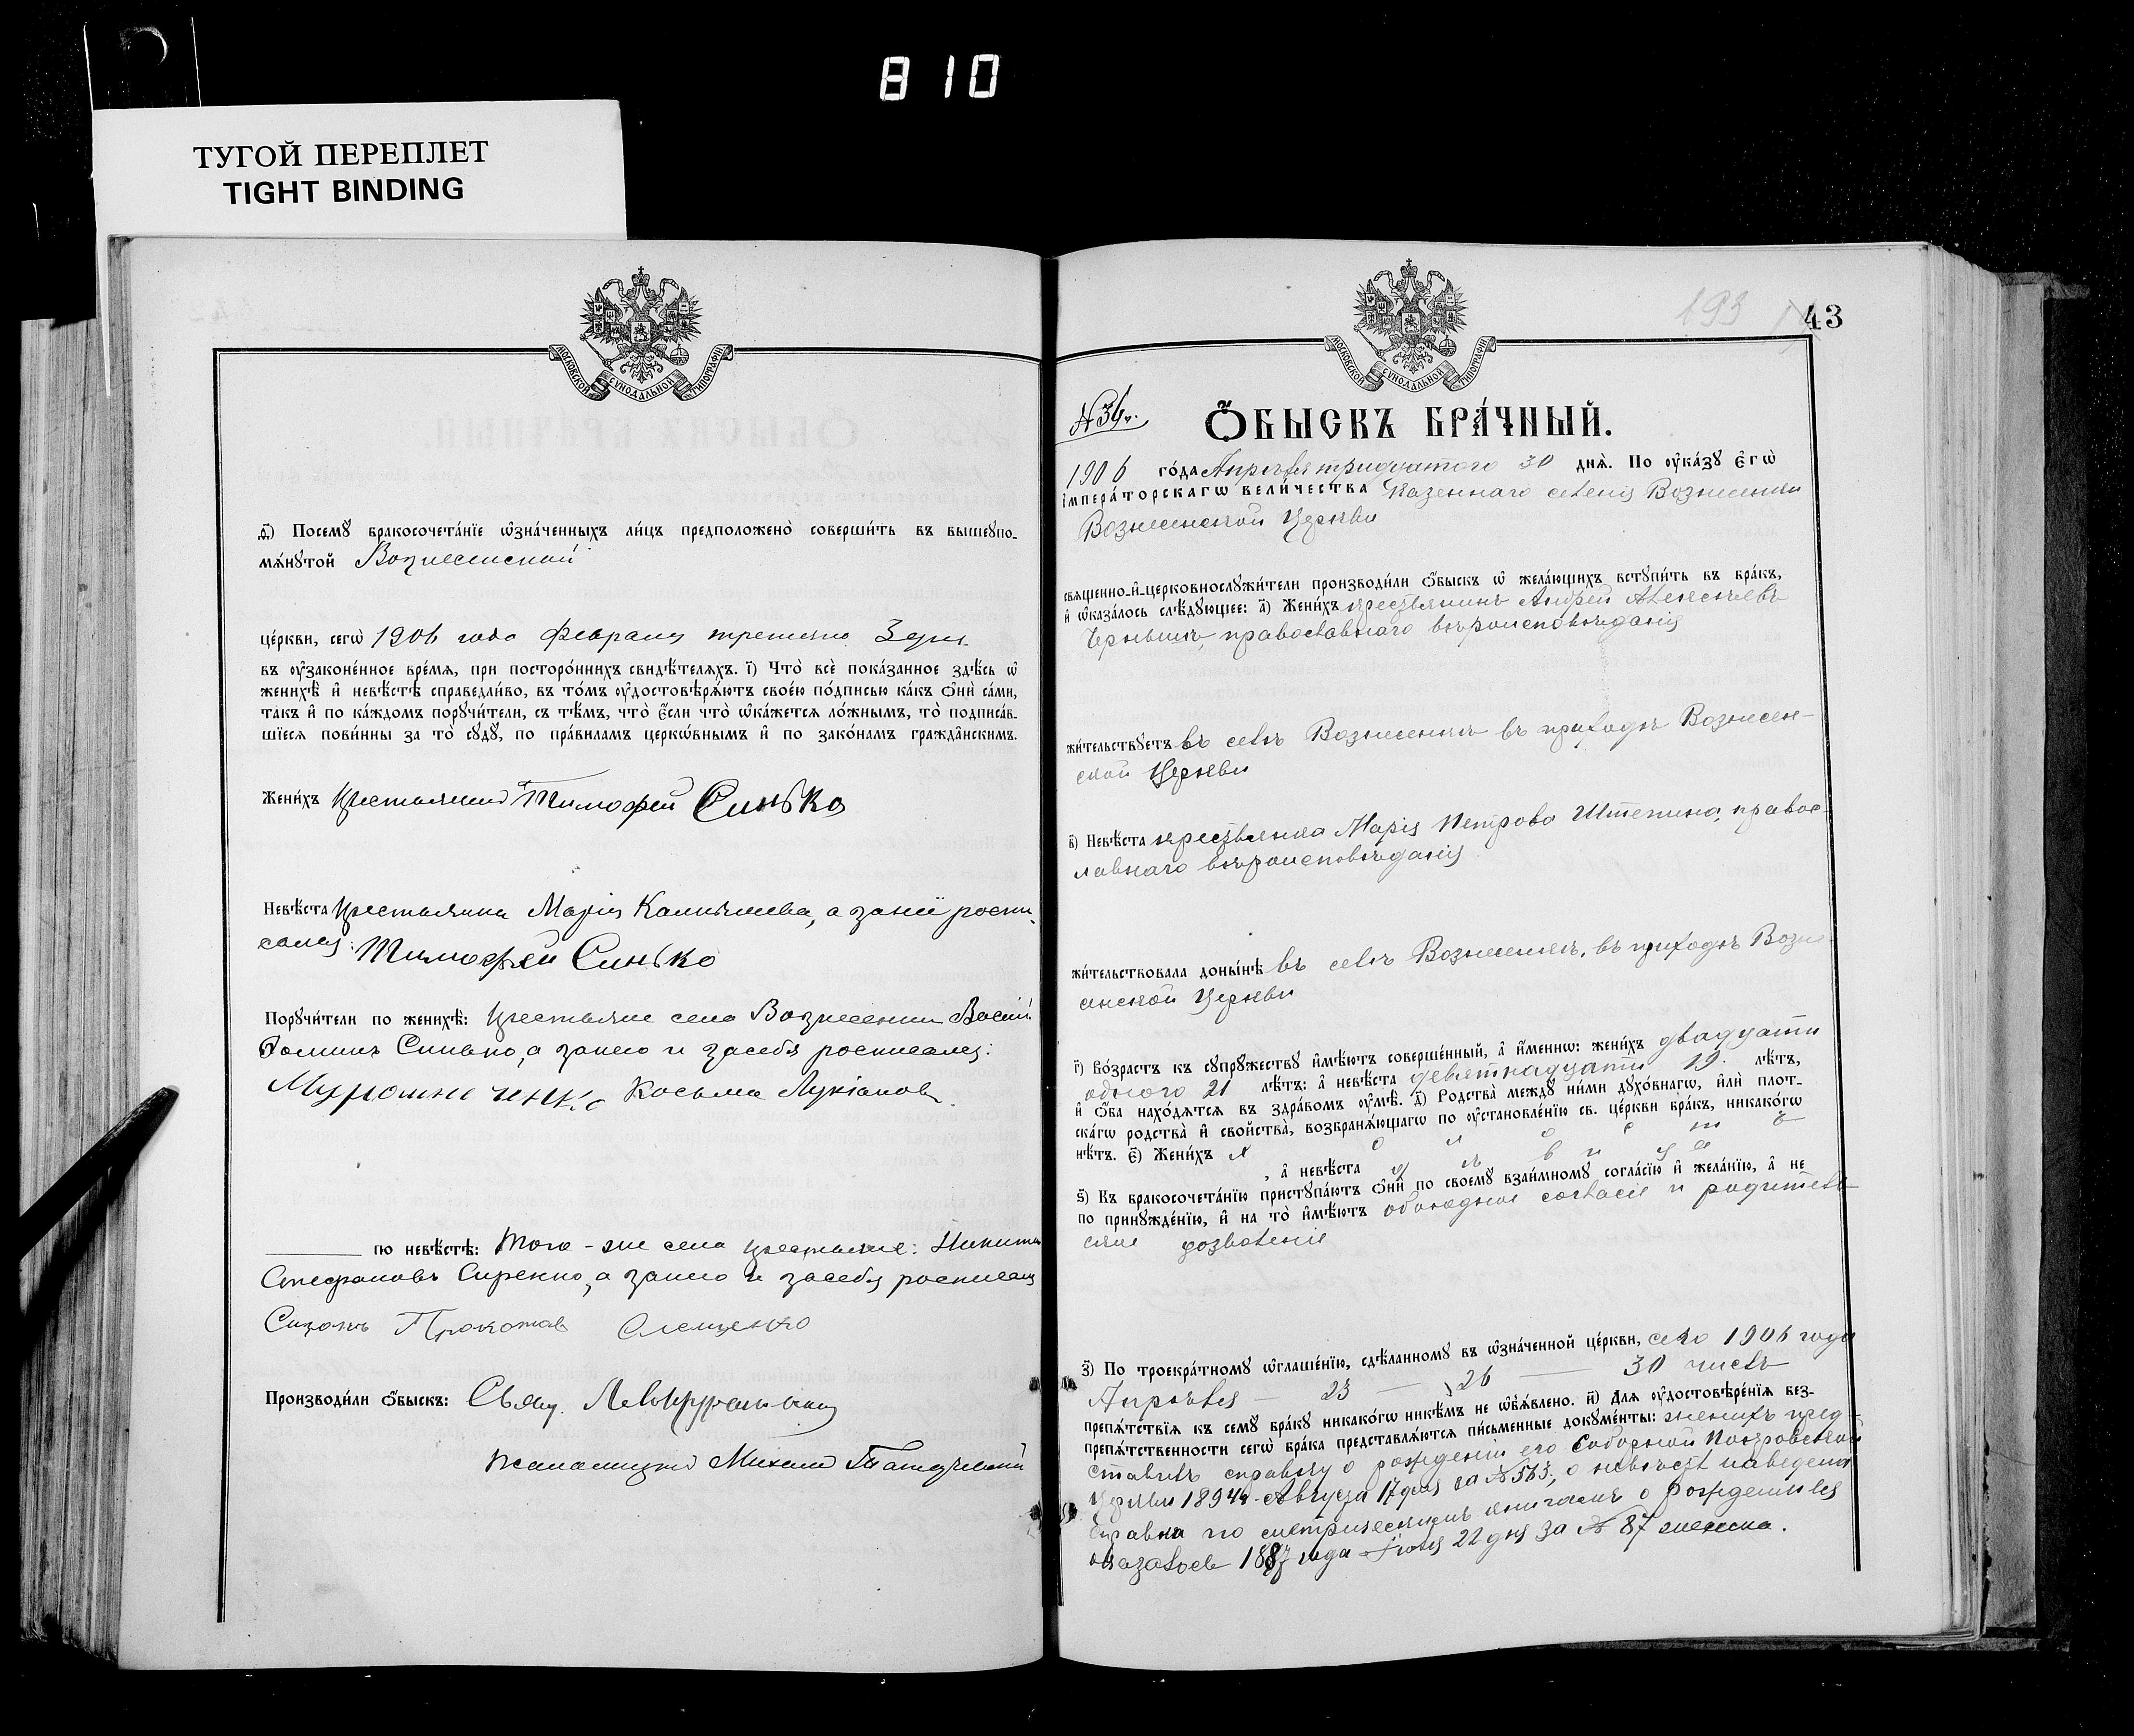 810
ТУГОЙ ПЕРЕПЛЕТ
TIGHT BINDING
МОСКОВСКОЙ СѴНОДАЛЬНОЙ ТИПОГРАФІИ
ѳ҃) Посемꙋ бракосочета́нїе ѡ҆зна́ченныхъ ли́цъ предположено̀ соверши́ть въ вышеꙋпо-
мѧ́нꙋтой Вознесенской
це́ркви, сегѡ̀ 1906 года Февраля третьяго 3 дня
въ оу҆законе́нное вре́мѧ, при посторо́ннихъ свидѣ́телѧхъ. і҃) Что̀ всѐ пока́занное здѣ́сь ѡ҆
женихѣ̀ и҆ невѣ́стѣ справедли́во, въ то́мъ оу҆достовѣрѧ́ютъ свое́ю по́дписью ка́къ ѻ҆нѝ са́ми,
та́къ и҆ по ка́ждомъ порꙋчи́тели, съ тѣ́мъ, что̀ є҆́сли что̀ ѡ҆ка́жетсѧ ло́жнымъ, то̀ подписа́в-
шїесѧ пови́нны за то̀ сꙋдꙋ̀, по пра́виламъ церкѡ́внымъ и҆ по зако́намъ гражда́нскимъ.
Жени́хъ Крестьянинъ Тимофей Синько
Невѣ́ста Крестьянка Марія Камышева, а за ней роспи-
сался: Тимофей Синько
Порꙋчи́тели по женихѣ̀: Крестьяне села Вознесенки Васил.
Фоминъ Синько, а за него и за себя росписался:
Мирошниченко Косьма Лукіановъ
по невѣ́стѣ: того-же села крестьяне: Никита
Стефановъ Сиренко, а за него и за себя росписался
Слещенко
Производи́ли ѻ҆́быскъ: Свящ.
Псаломщикъ Михаилъ
193
43
МОСКОВСКОЙ СѴНОДАЛЬНОЙ ТИПОГРАФІИ
N 34.
Ѻ҆́БЫСКЪ БРА́ЧНЫЙ.
1906 го́да Апрѣля тридцатого 30 днѧ̀. По оу҆ка́зꙋ є҆гѡ̀
і҆мпера́торскагѡ вели́чества Казеннаго селенія Вознесенки
Вознесенской Церкви
свѧще́нно-и҆-церковнослꙋжи́тели производи́ли ѻ҆́быскъ ѡ҆ жела́ющихъ встꙋпи́ть въ бра́къ,
и҆ ѡ҆каза́лось слѣ́дꙋющее: а҃) Жени́хъ крестьянинъ Андрей Алексѣевъ
православнаго вѣроисповѣданія
жи́тельствꙋетъ въ селѣ Вознесенкѣ въ приходѣ Вознесен-
ской Церкви
в҃) Невѣ́ста крестьянка Марія Петрова Штепина, правос-
лавнаго вѣроисповѣданія
жи́тельствовала доны́нѣ въ селѣ Вознесенкѣ, въ приходѣ Возне-
сенской Церкви
г҃) Во́зрастъ къ сꙋпрꙋ́жествꙋ и҆мѣ́ютъ соверше́нный, а҆ и҆́меннѡ: жени́хъ двадцати
одного 21 лѣ́тъ: а҆ невѣ́ста девятнадцати 19. лѣ́тъ,
и҆ ѻ҆́ба нахо́дѧтсѧ въ здра́вомъ оу҆мѣ̀. д҃) Родства̀ междꙋ̀ ни́ми дꙋхо́внагѡ, и҆лѝ пло́т-
скагѡ родства̀ и҆ сво́йства̀, возбранѧ́ющагѡ по оу҆становле́нїю св. це́ркви бра́къ, никако́гѡ
нѣ́тъ. є҃) Жени́хъ х о л о с т ъ
, а҆ невѣ́ста д ѣ в и ц а
ѕ҃) Къ бракосочета́нїю пристꙋпа́ютъ ѻ҆нѝ по своемꙋ̀ взаи́мномꙋ согла́сїю и҆ жела́нїю, а҆ не
по принꙋжде́нїю, и҆ на то̀ и҆мѣ́ютъ обоюдное согласіе и родитель-
ское дозволеніе
з҃) По троекра́тномꙋ ѡ҆глаше́нїю, сдѣ́ланномꙋ въ ѡ҆зна́ченной це́ркви, сего 1906 года
Апрѣля — 23 — 26 — 30 числъ
препѧ́тствїѧ къ семꙋ̀ бра́кꙋ никако́гѡ никѣ́мъ не ѡ҆бъѧ́влено. и҃) Длѧ оу҆достовѣре́нїѧ без-
препѧ́тственности сегѡ̀ бра́ка представлѧ́ютсѧ пи́сьменные докꙋме́нты: женихъ пред-
ставилъ справку о рожденіи его Соборной Покровской
Церкви 1894 г. Августа 17 дня за № 563, о невѣстѣ наведена
справка по метрическимъ книгамъ о рожденіи ея
оказалось 1887 года Іюля 22 дня за № 87 женска.